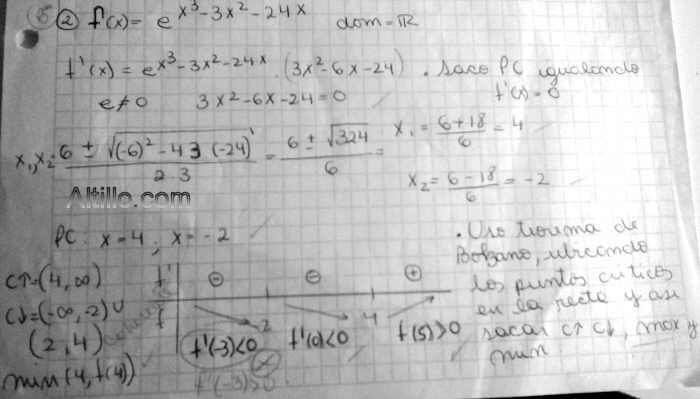 ② f(x) = e^x³-3x²-24x   dom = ℝ
f'(x) = e^x³-3x²-24x . (3x²-6x-24) . saco PC igualando
f'(x) = 0
e ≠ 0   3x²-6x-24 = 0
x₁,x₂ = 6 ± √(-6)²-4 3 (-24) / 2 3 = 6 ± √324 / 6 =
x₁ = 6+18 / 6 = 4
x₂ = 6-18 / 6 = -2
Altillo.com
PC: x = 4; x = -2
. Uso teorema de
Bolzano, ubicando
los puntos criticos
en la recta y asi
sacar C↑ C↓, max y
min
C↑ = (4, ∞)
C↓ = (-∞, -2) ∪
(2, 4)
min (4, f(4))
f' ⊖ ⊖ ⊕
f -2 4
f'(-3)<0 f'(0)<0 f(5)>0
f'(-3)>0